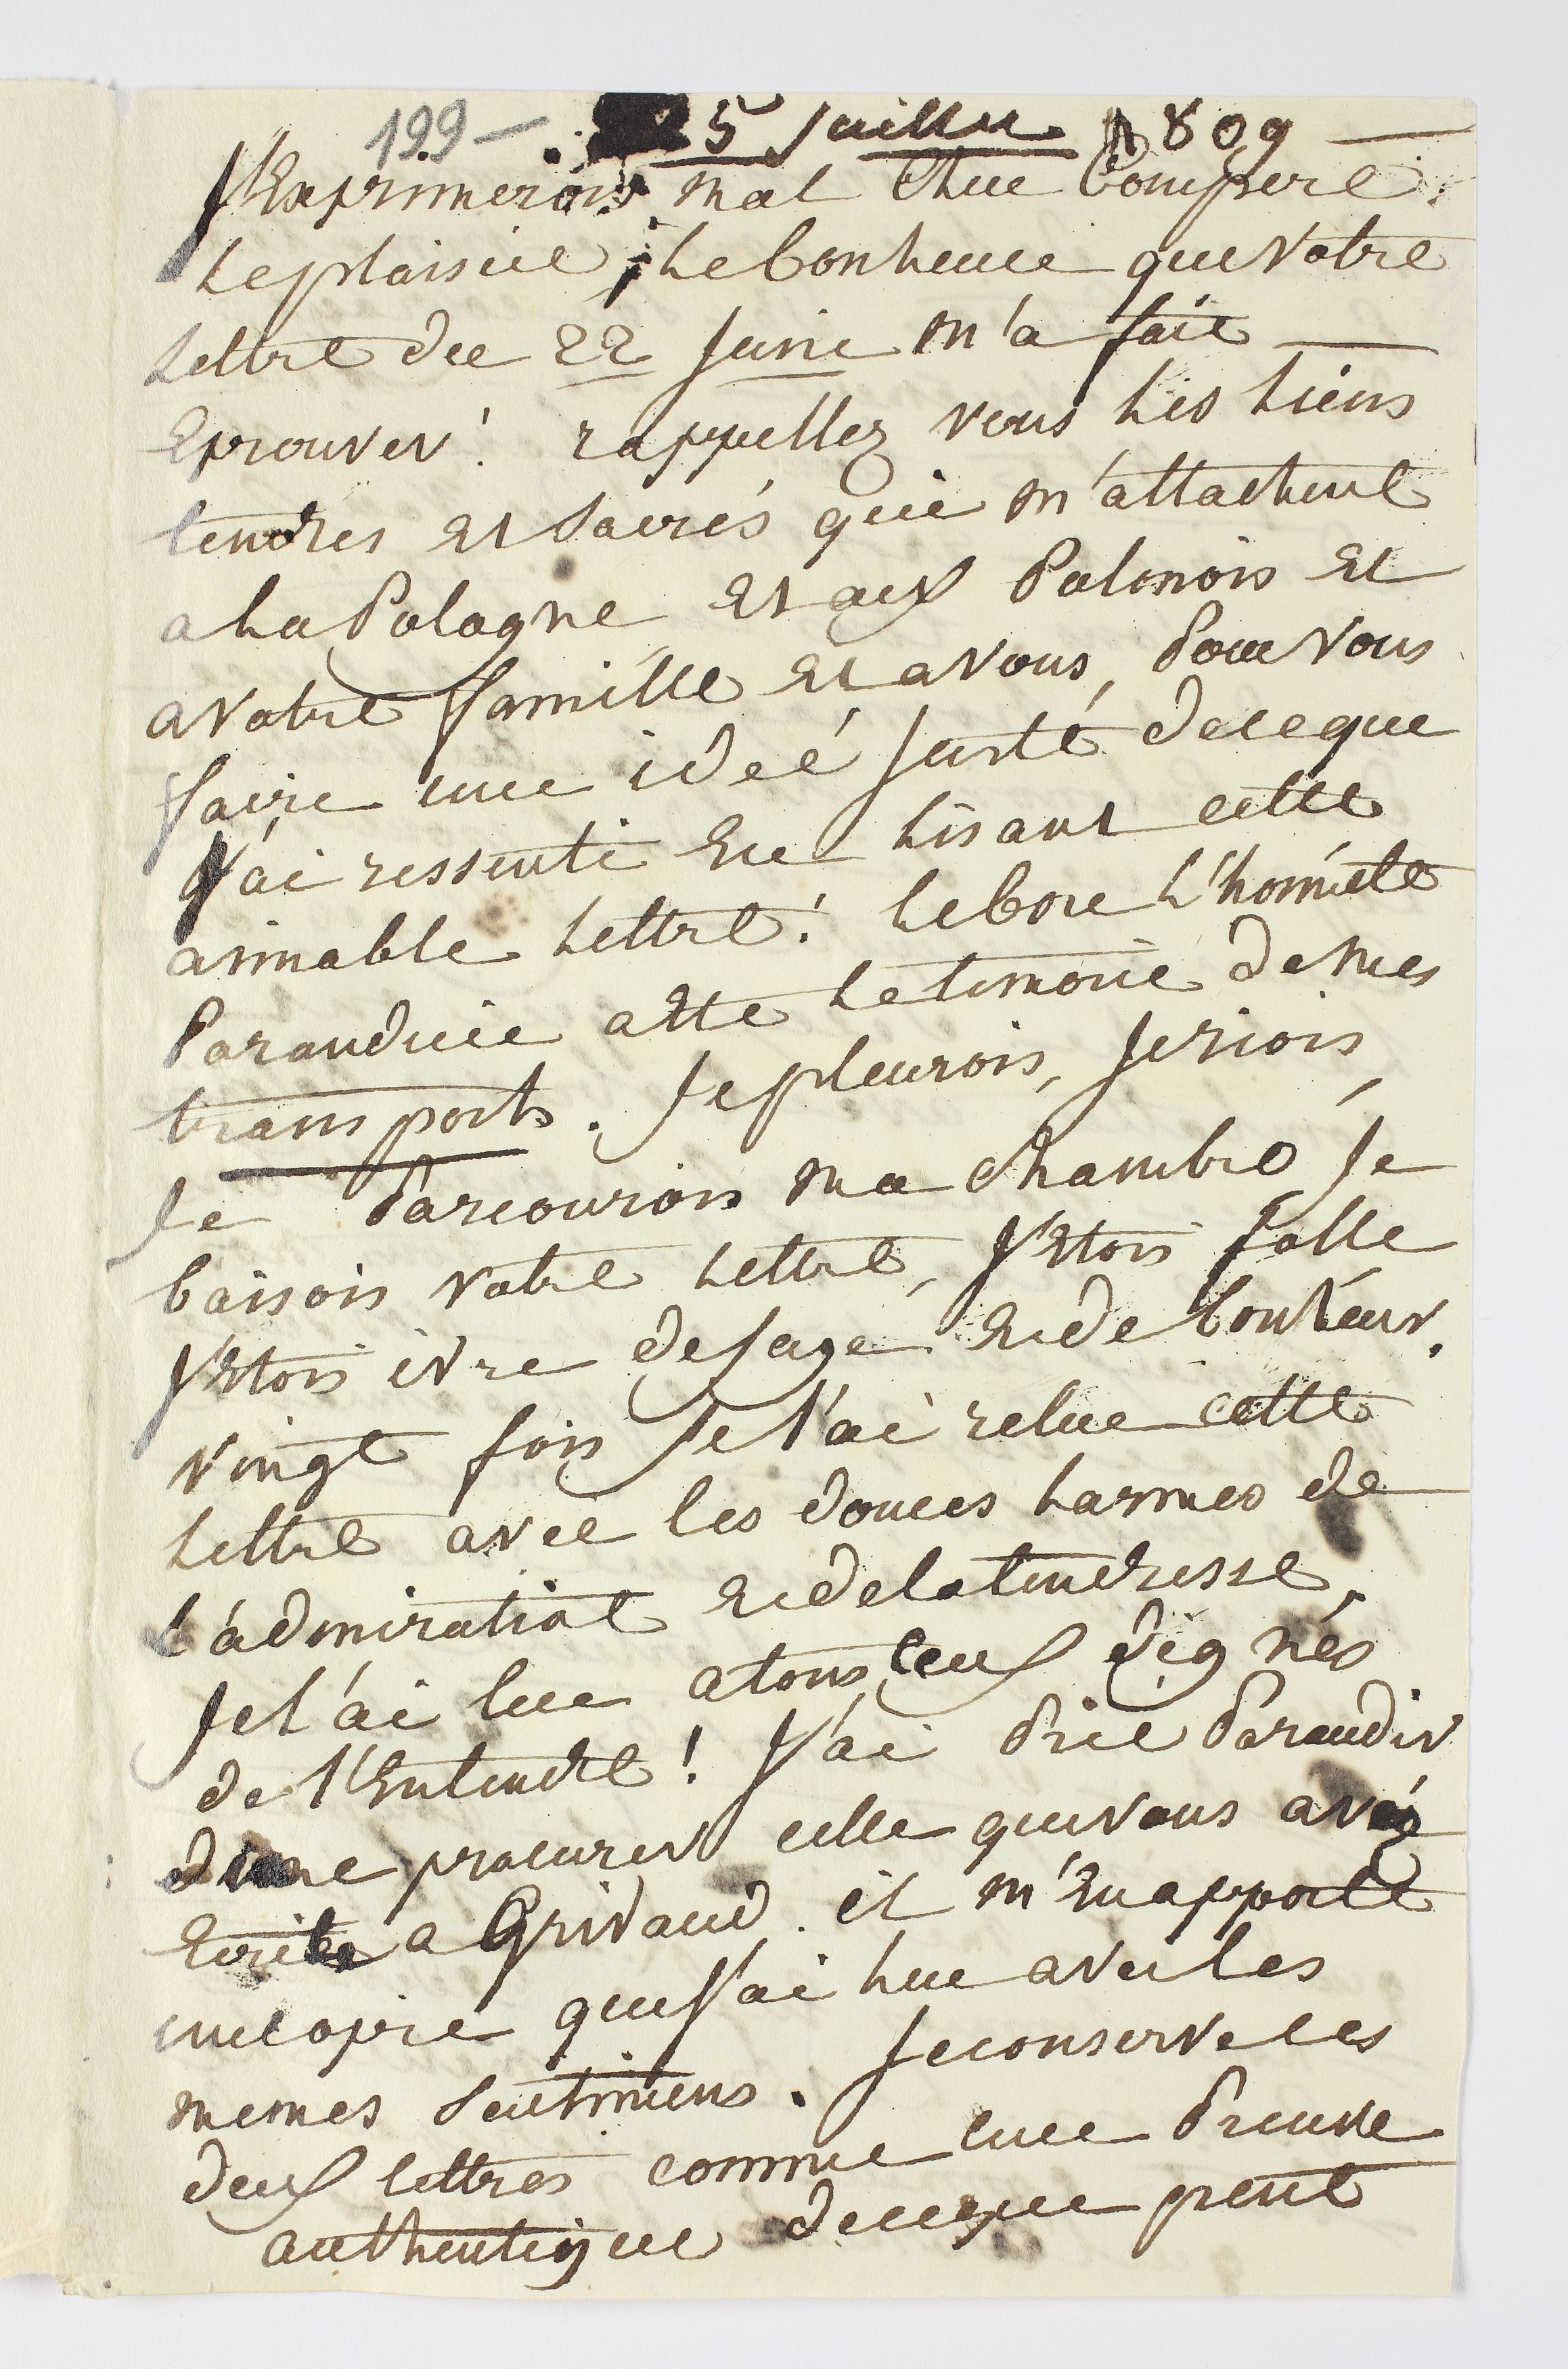 199 — 25 Juillet 1809 —
J'Exprimerois mal Cher Compere
Le plaisir, Le bonheur que votre
Lettre du 22 Juin m'a fait —
Eprouver! rappellez vous Les Liens
tendres Et Sacrés qui m'attachent
a La Pologne Et aux Polonois Et
a votre famille Et a vous, Pour vous
faire une ideé Juste de ce que
J'ai ressenti En Lisant cette
aimable Lettre! Le bon L'honnète
Parandier a Eté Le temoin de mes
transports. Je pleurois, Je riois,
Je Parcourois ma Chambre Je
baisois votre Lettre, J'Etois folle
J'Etois ivre de Joye Et de bonheur.
vingt fois Je l'ai relue cette
Lettre avec les douces Larmes de
l'admiration Et de la tendresse,
Je L'ai lue a tous ceux dignes
de l'Entendre! J'ai Prié Parandier
de me procurer celle que vous avéz
Ecrite a Grivaud. il m'En apporte
une copie que J'ai Lue avec les
memes Sentimens. Je conserve ces
deux lettres comme une Preuve
authentique de ce que peut